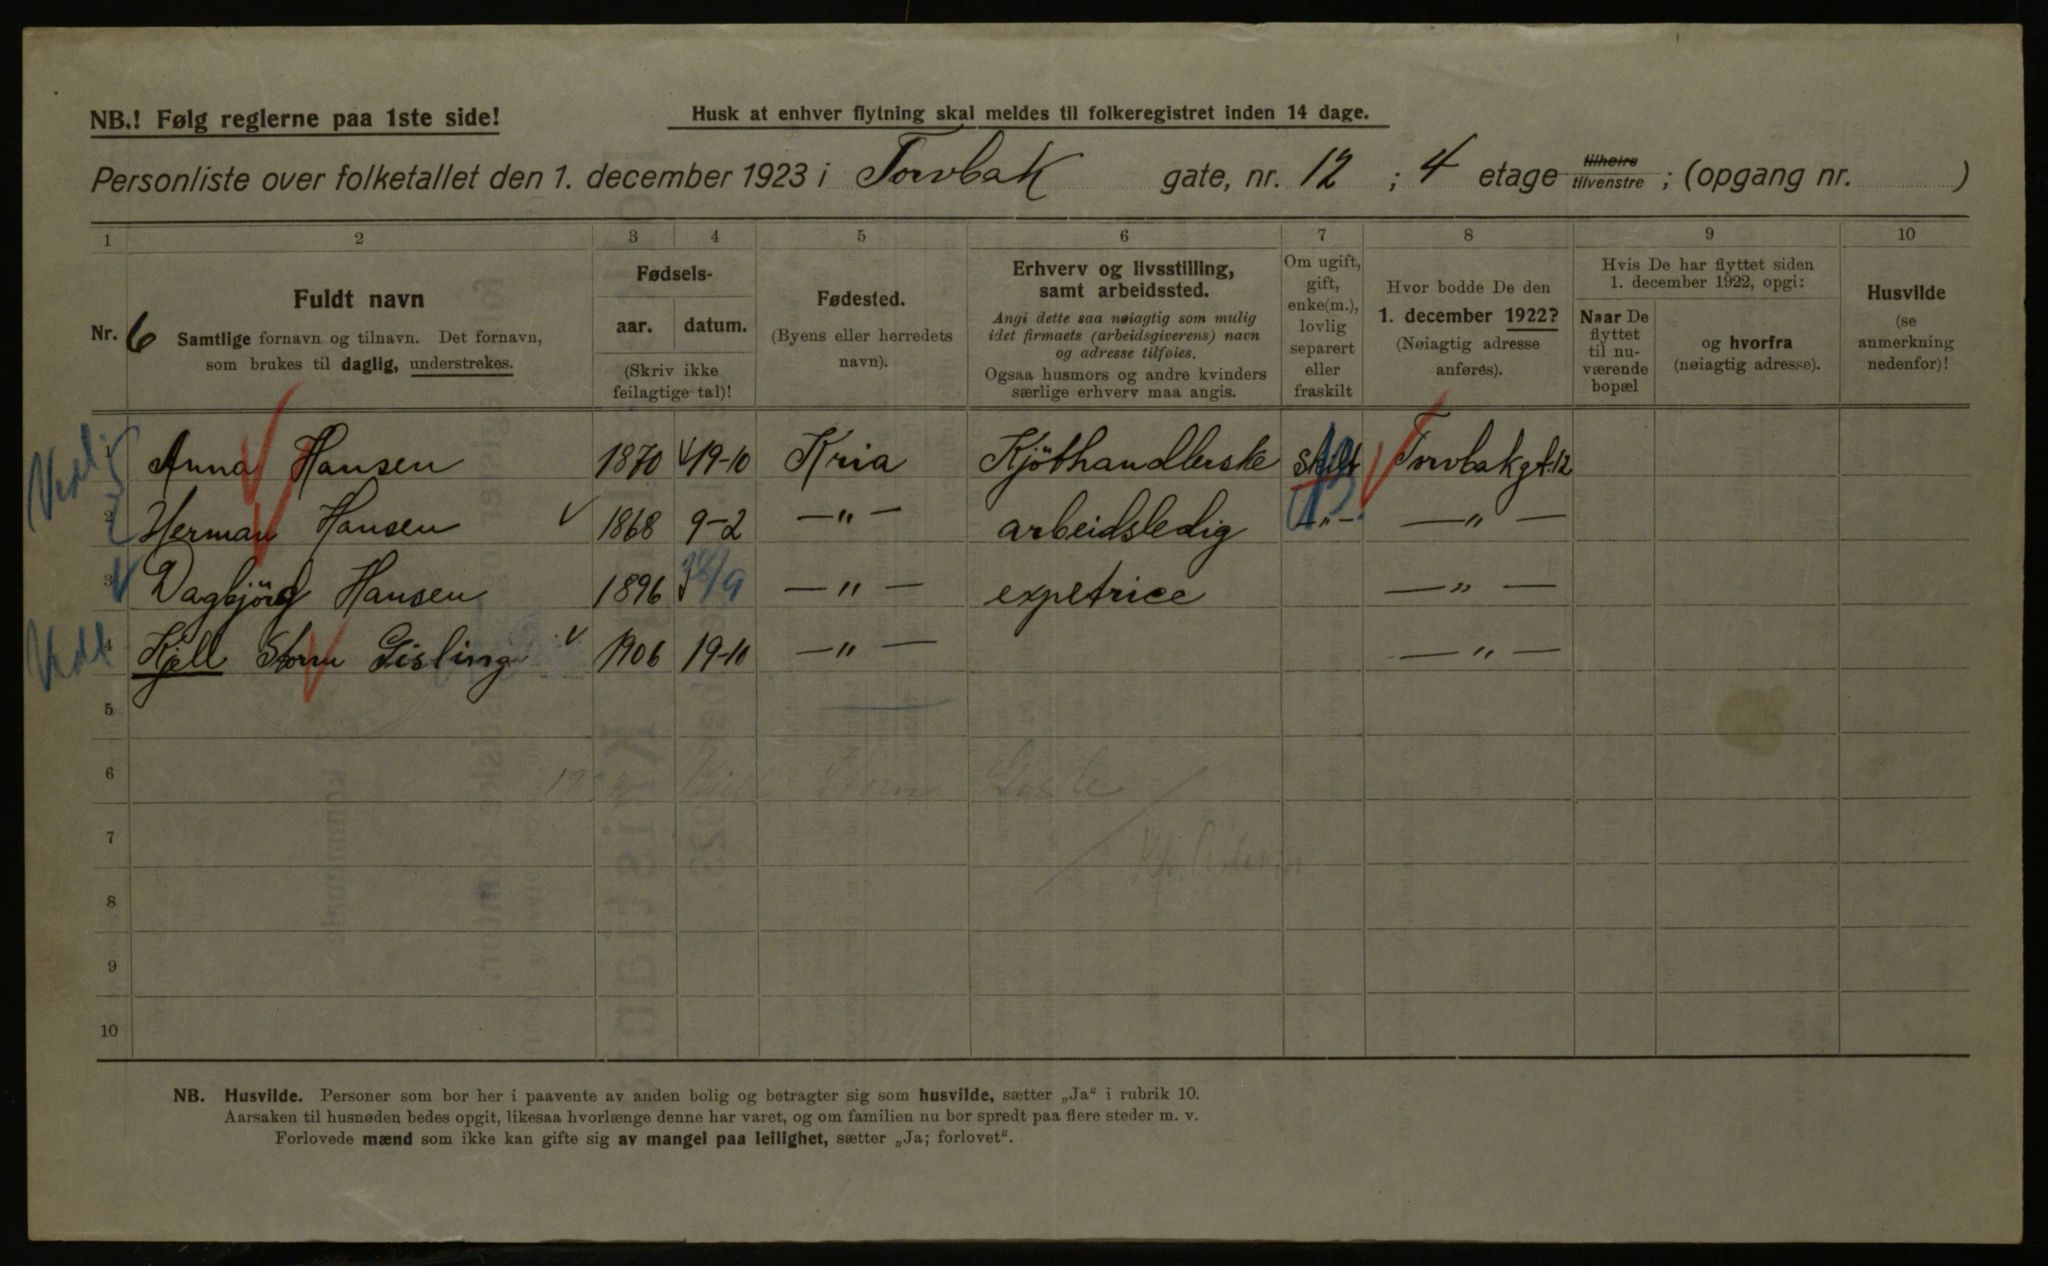 NB.! Følg reglerne paa 1ste side!
Husk at enhver flytning skal meldes til folkeregistret inden 14 dage.
Personliste over folketallet den 1. december 1923 i Torvbak gate, nr. 12 ; 4 etage tilhøire tilvenstre ; (opgang nr. )
1 2 3 4 5 6 7 8 9 10
Nr. 6
Fuldt navn
Samtlige fornavn og tilnavn. Det fornavn,
som brukes til daglig, understrekes.
Fødsels-
aar. datum.
(Skriv ikke
feilagtige tal)!
Fødested.
(Byens eller herredets
navn).
Erhverv og livsstilling,
samt arbeidssted.
Angi dette saa nøiagtig som mulig
idet firmaets (arbeidsgiverens) navn
og adresse tilføies.
Ogsaa husmors og andre kvinders
særlige erhverv maa angis.
Om ugift,
gift,
enke(m.),
lovlig
separert
eller
fraskilt
Hvor bodde De den
1. december 1922?
(Nøiagtig adresse
anføres).
Hvis De har flyttet siden
1. december 1922, opgi:
Naar De
flyttet
til nu-
værende
bopæl
og hvorfra
(nøiagtig adresse).
Husvilde
(se
anmerkning
nedenfor)!
1 Anna Hansen 1870 19-10 Kria Kjöthandlerske skilt Torvbakgt. 12
2 Herman Hansen 1868 9-2 —"— arbeidsledig —"— —"—
3 Dagbjörg Hansen 1896 —"— expetrice —"—
4 Kjell Storm Gisling 1906 19-10 —"— —"—
5
6 Kjell Storm
7
8
9
10
NB. Husvilde. Personer som bor her i paavente av anden bolig og betragter sig som husvilde, sætter „Ja“ i rubrik 10.
Aarsaken til husnøden bedes opgit, likesaa hvorlænge denne har varet, og om familien nu bor spredt paa flere steder m. v.
Forlovede mænd som ikke kan gifte sig av mangel paa leilighet, sætter „Ja; forlovet“.